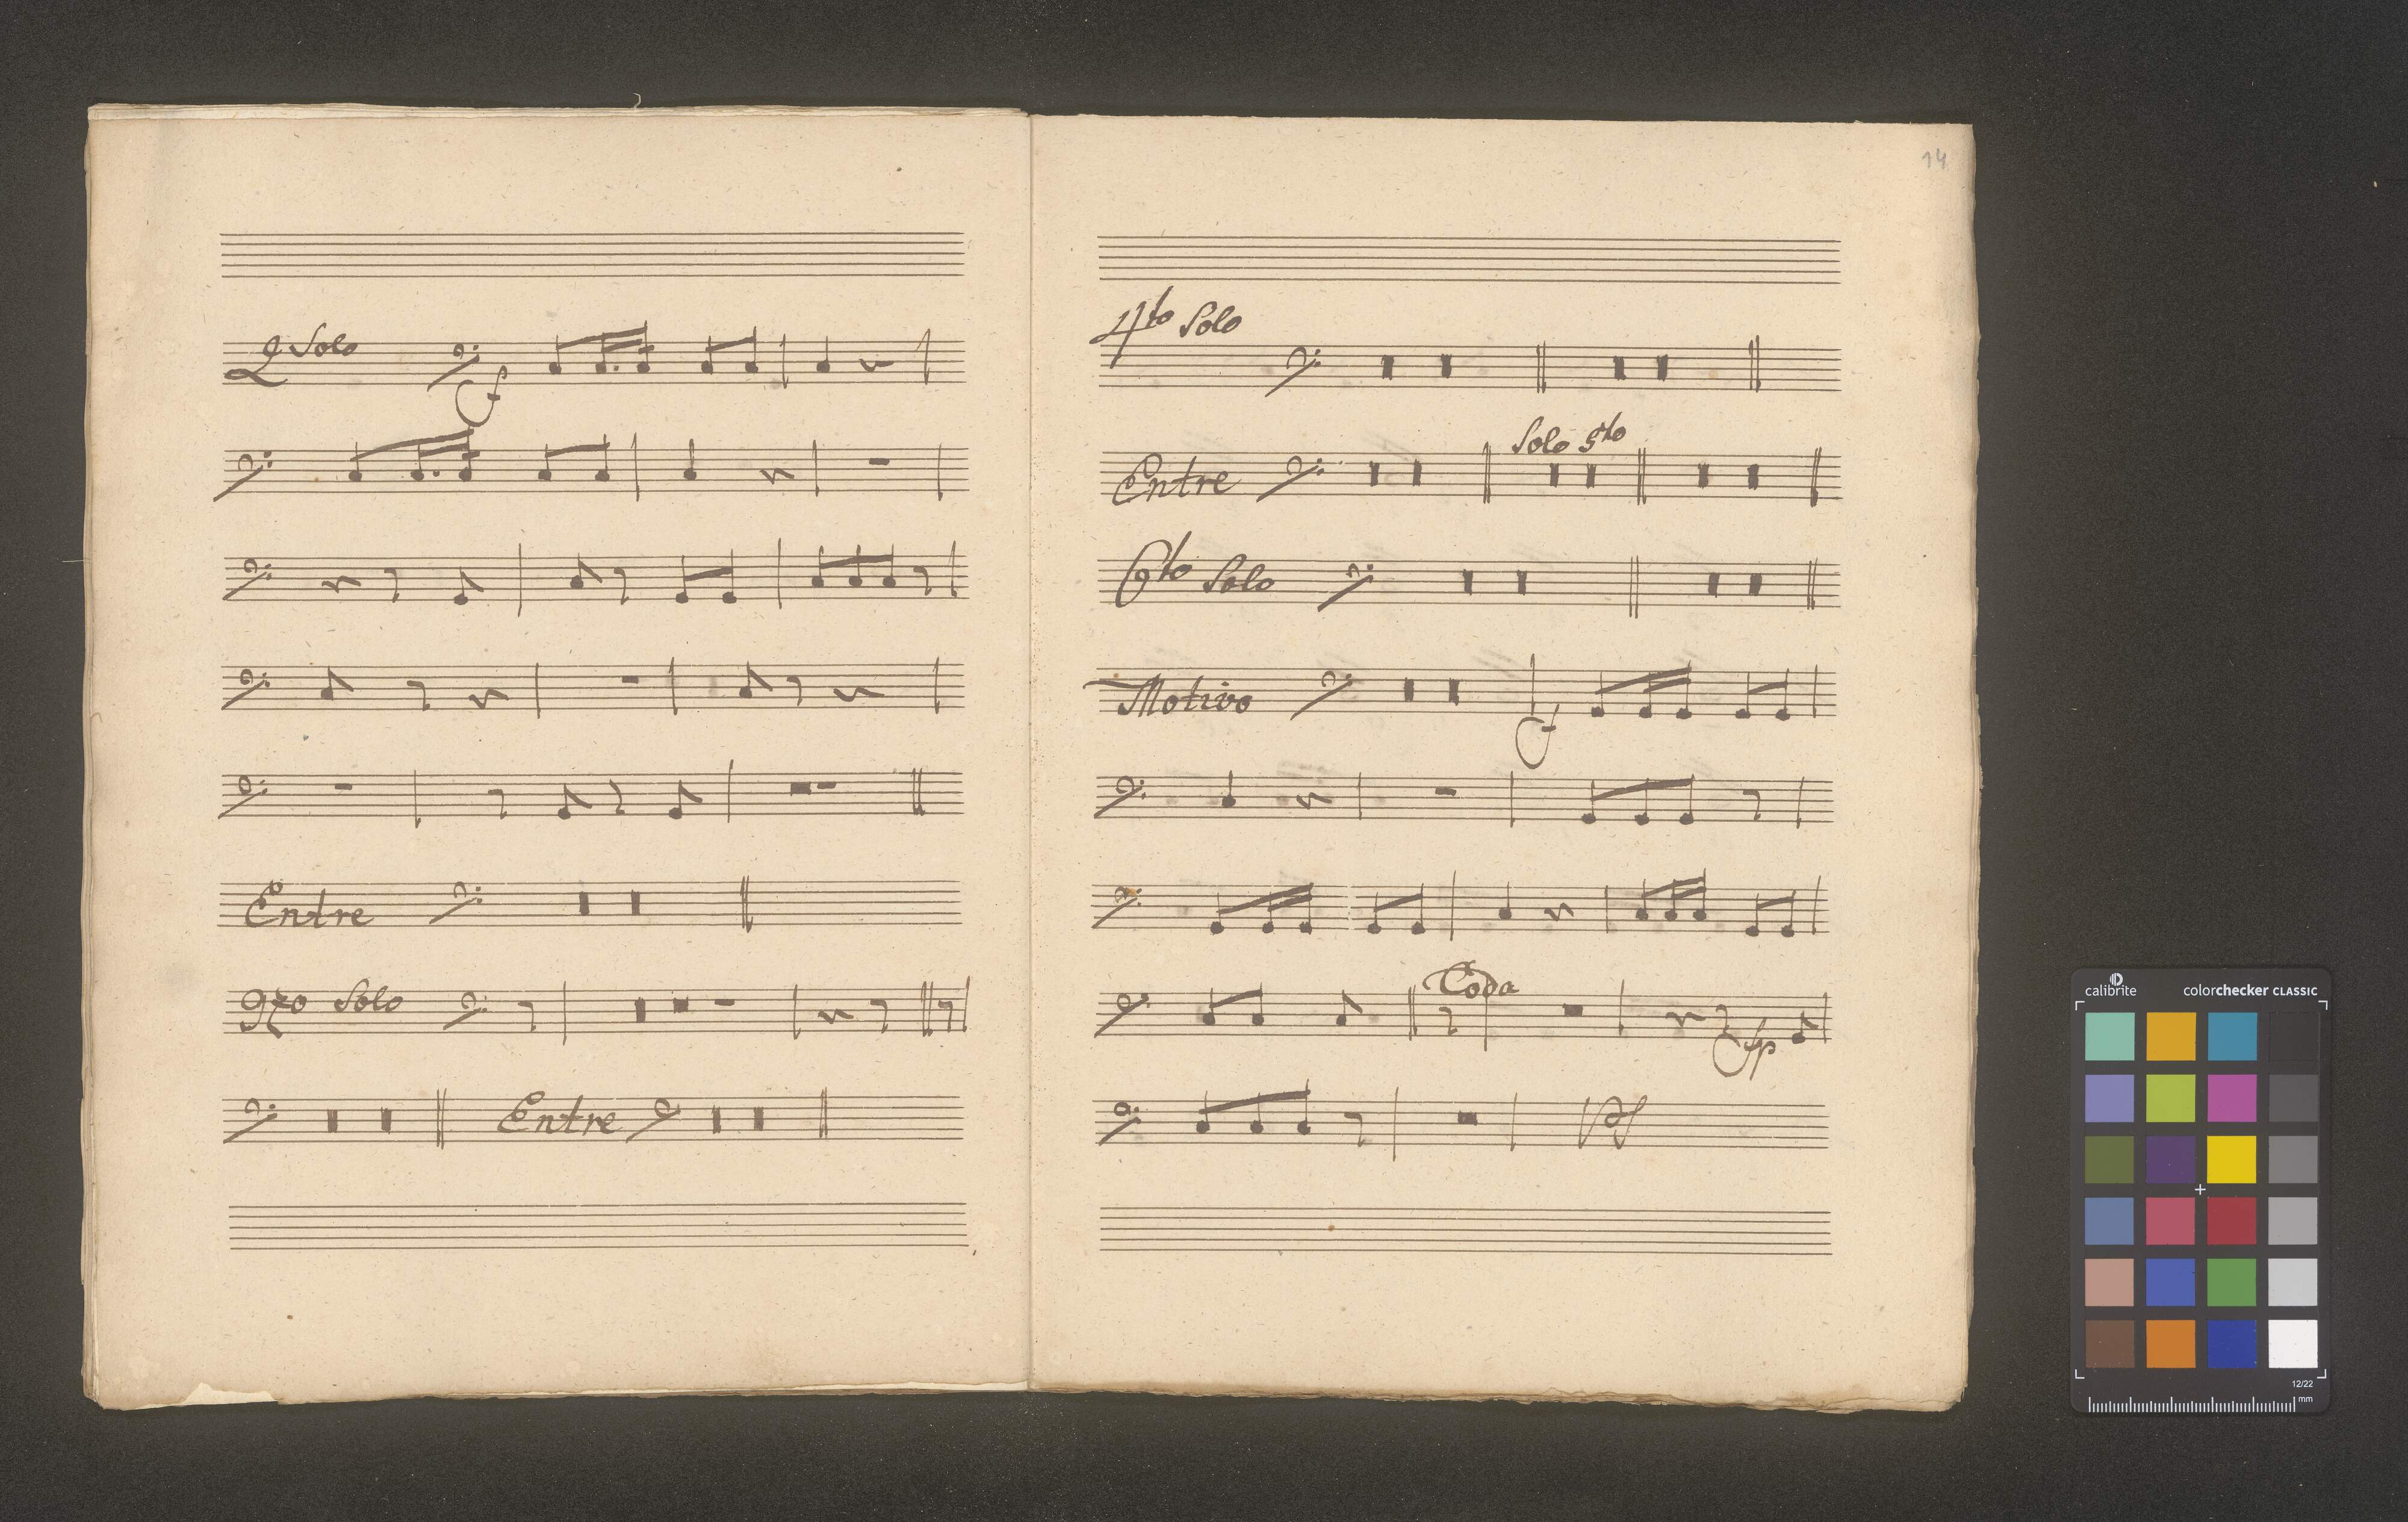 2 Solo
f
Entre
3zo Solo
Entre
14
4to Solo
Solo 5to
Entre
6to Solo
Motivo
f
Coda
fp
calibrite colorchecker CLASSIC
12/22
mm